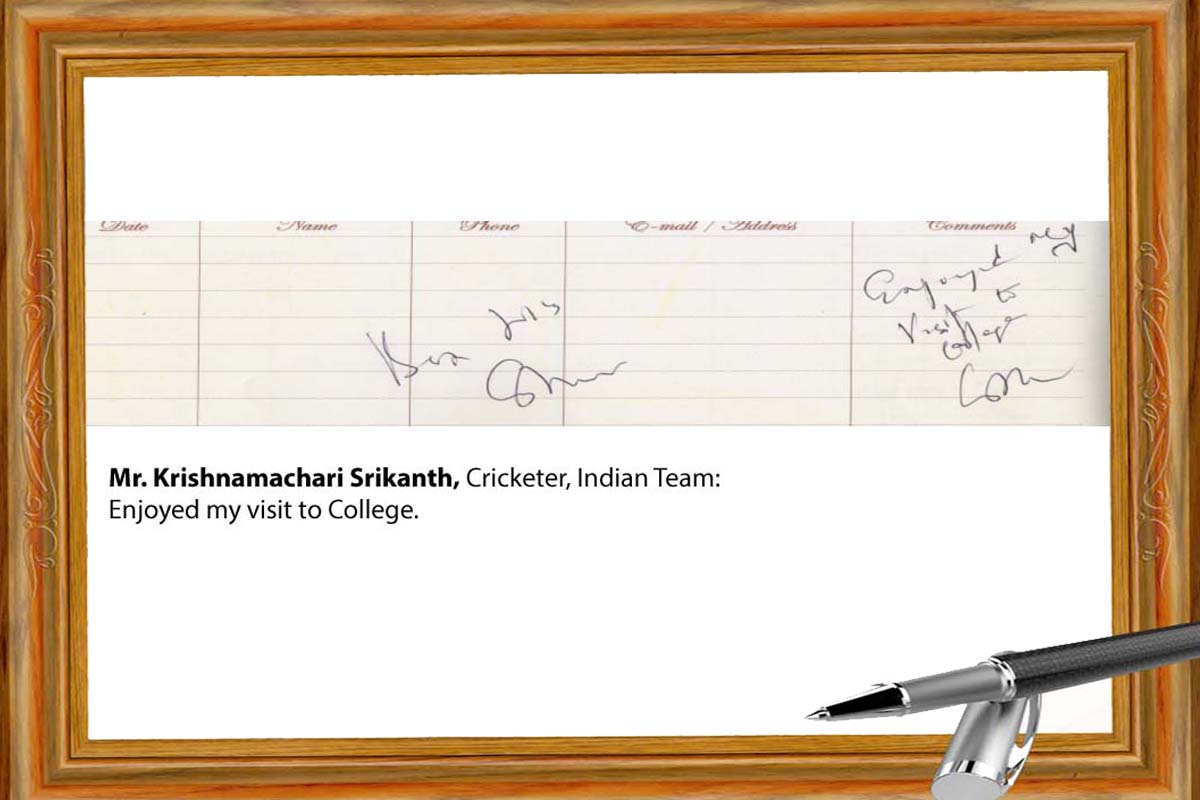 Date Name Phone E-mail / Address Comments
Enjoyed my
visit to
College
Best
Mr. Krishnamachari Srikanth, Cricketer, Indian Team:
Enjoyed my visit to College.